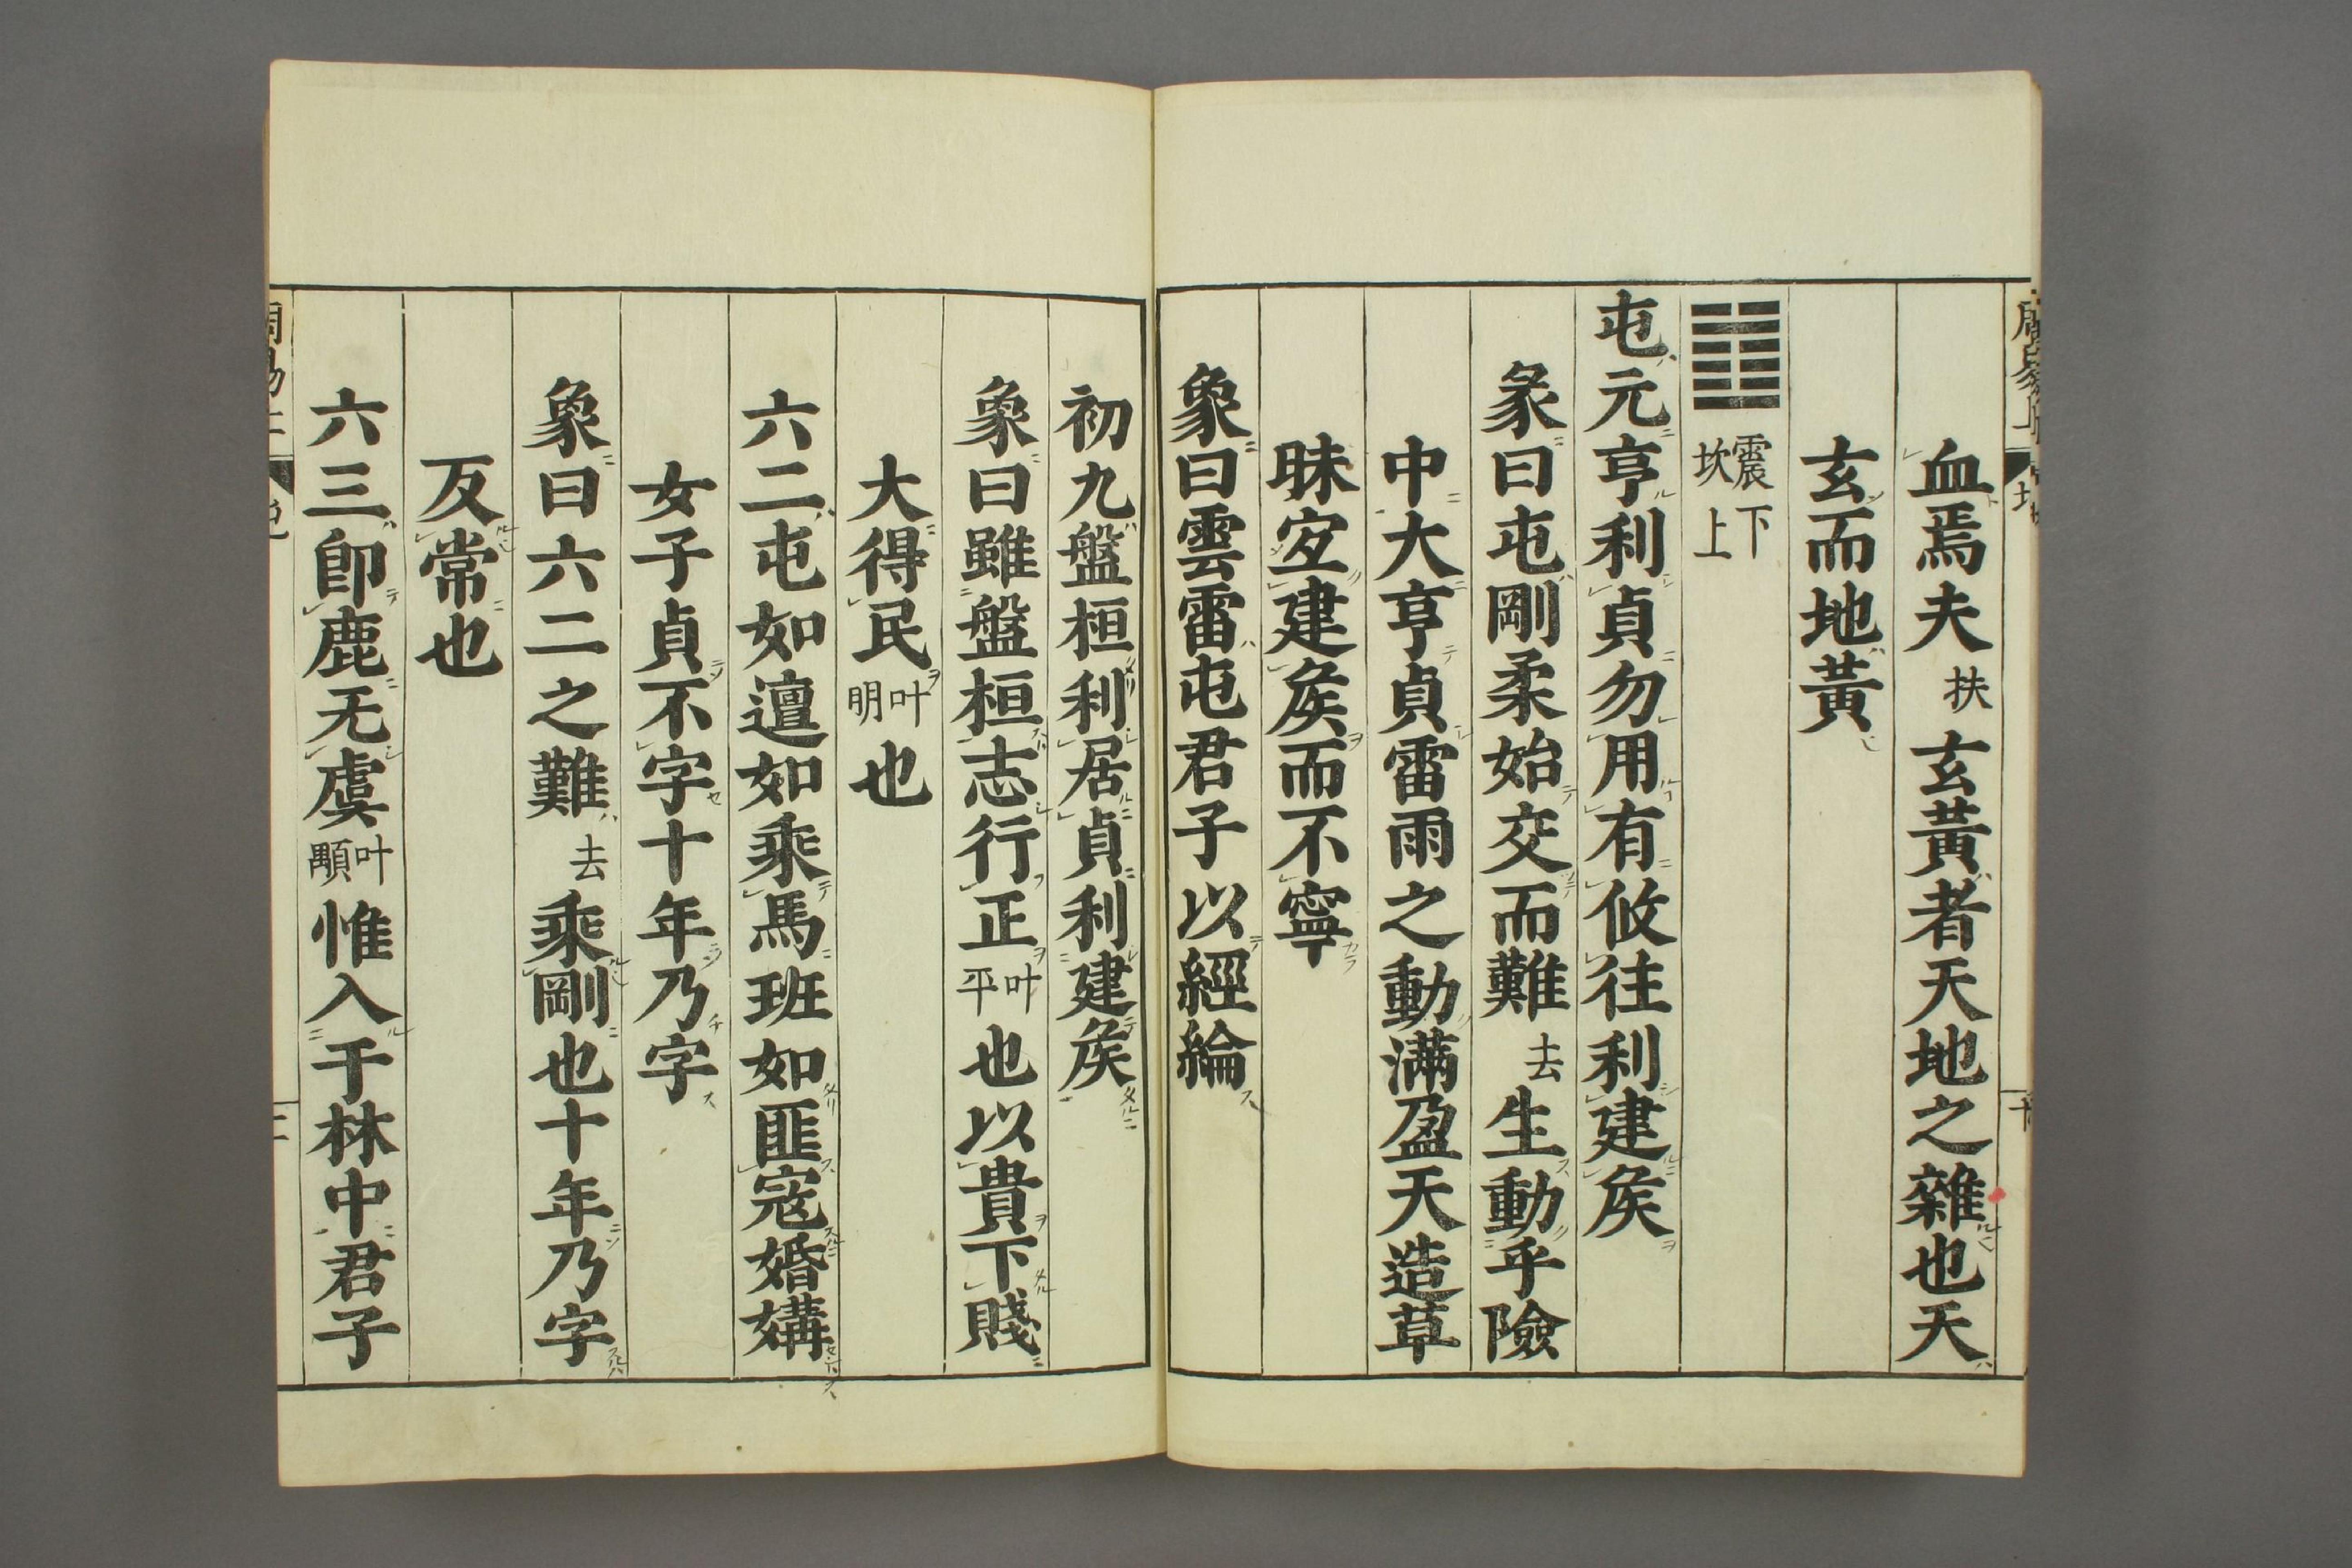 血焉夫扶玄黃者天地之雜也天
玄而地黃
䷂震下坎上
屯元亨利貞勿用有攸往利建矦
彖曰屯剛柔始交而難去生動乎險
中大亨貞雷雨之動滿盈天造草
昧宜建矦而不寧
象曰雲雷屯君子以經綸
初九盤桓利居貞利建矦
象曰雖盤桓志行正叶平也以貴下賤
大得民叶明也
六二屯如邅如乘馬班如匪寇婚媾
女子貞不字十年乃字
象曰六二之難去乘剛也十年乃字
反常也
六三卽鹿无虞叶顒惟入于林中君子